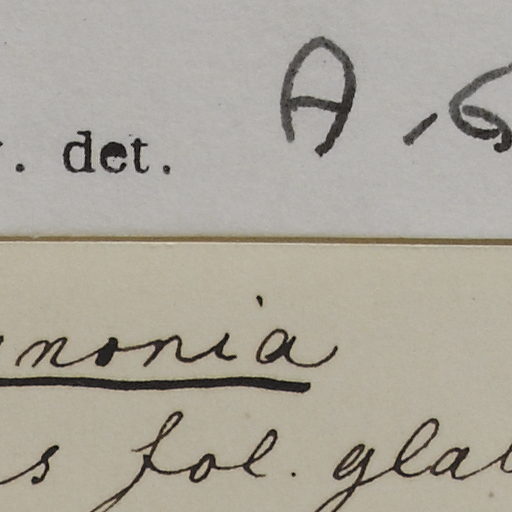 . det. A. G
nonia
s fol. glab